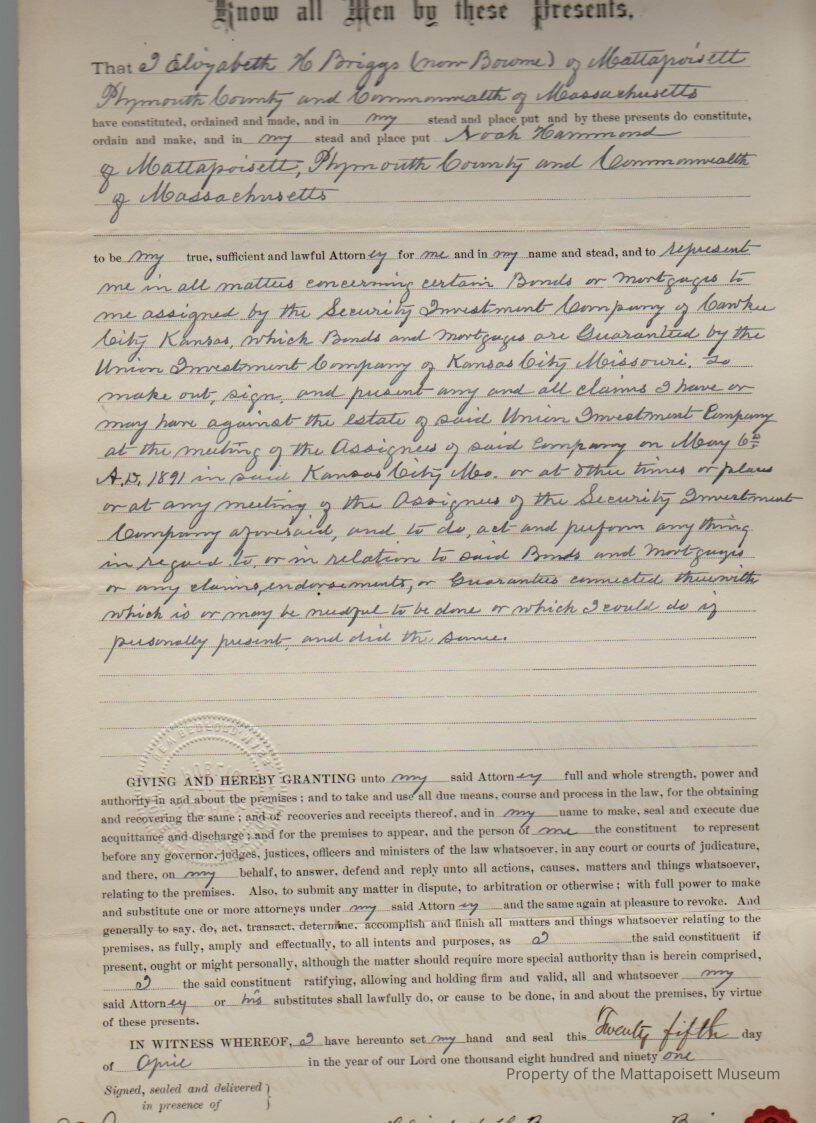 Know all Men by these Presents,
That I Elizabeth H Briggs (now Bowme) of Mattapoisett
Plymouth County and Commonwealth of Massachusetts
have constituted, ordained and made, and in my stead and place put and by these presents do constitute,
ordain and make, and in my stead and place put Noah Hammond
of Mattapoisett, Plymouth County and Commonwealth
of Massachusetts
to be my true, sufficient and lawful Attorney for me and in my name and stead, and to represent
me in all matters concerning certain Bonds or Mortgages to
me assigned by the Security Investment Company of Cawker
City Kansas, which Bonds and Mortgages are Guaranteed by the
Union Investment Company of Kansas City Missouri. To
make out, sign, and present any and all claims I have or
may have against the estate of said Union Investment Company
at the meeting of the Assignees of said Company on May 6th
A.D. 1891 in said Kansas City Mo. or at other times or places
or at any meeting of the Assignees of the Security Investment
Company aforesaid, and to do, act and preform any thing
in regard to, or in relation to said Bonds and Mortgages
or any claims, endorsements, or Guarantees connected therewith
which is or may be needful to be done or which I could do if
personally present, and did the same.
NEW BEDFORD
GIVING AND HEREBY GRANTING unto my said Attorney full and whole strength, power and
authority in and about the premises; and to take and use all due means, course and process in the law, for the obtaining
and recovering the same; and of recoveries and receipts thereof, and in my name to make, seal and execute due
acquittance and discharge; and for the premises to appear, and the person of me the constituent to represent
before any governor, judges, justices, officers and ministers of the law whatsoever, in any court or courts of judicature,
and there, on my behalf, to answer, defend and reply unto all actions, causes, matters and things whatsoever,
relating to the premises. Also, to submit any matter in dispute, to arbitration or otherwise; with full power to make
and substitute one or more attorneys under my said Attorney and the same again at pleasure to revoke. And
generally to say, do, act, transact, determine, accomplish and finish all matters and things whatsoever relating to the
premises, as fully, amply and effectually, to all intents and purposes, as I the said constituent if
present, ought or might personally, although the matter should require more special authority than is herein comprised,
I the said constituent ratifying, allowing and holding firm and valid, all and whatsoever my
said Attorney or his substitutes shall lawfully do, or cause to be done, in and about the premises, by virtue
of these presents.
IN WITNESS WHEREOF, I have hereunto set my hand and seal this Twenty fifth day
of April in the year of our Lord one thousand eight hundred and ninety one
Property of the Mattapoisett Museum
Signed, sealed and delivered
in presence of